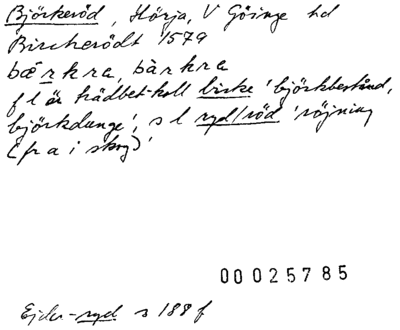 Björkeröd, Hörja, V Göinge hd
Birckerödt 1579
bærkra, bàrkra
f l är trädbet-koll birke 'björkbestånd,
björkdunge', s l ryd/röd 'röjning
(fr a i skog)'
00025785
Ejder -ryd s 188 f